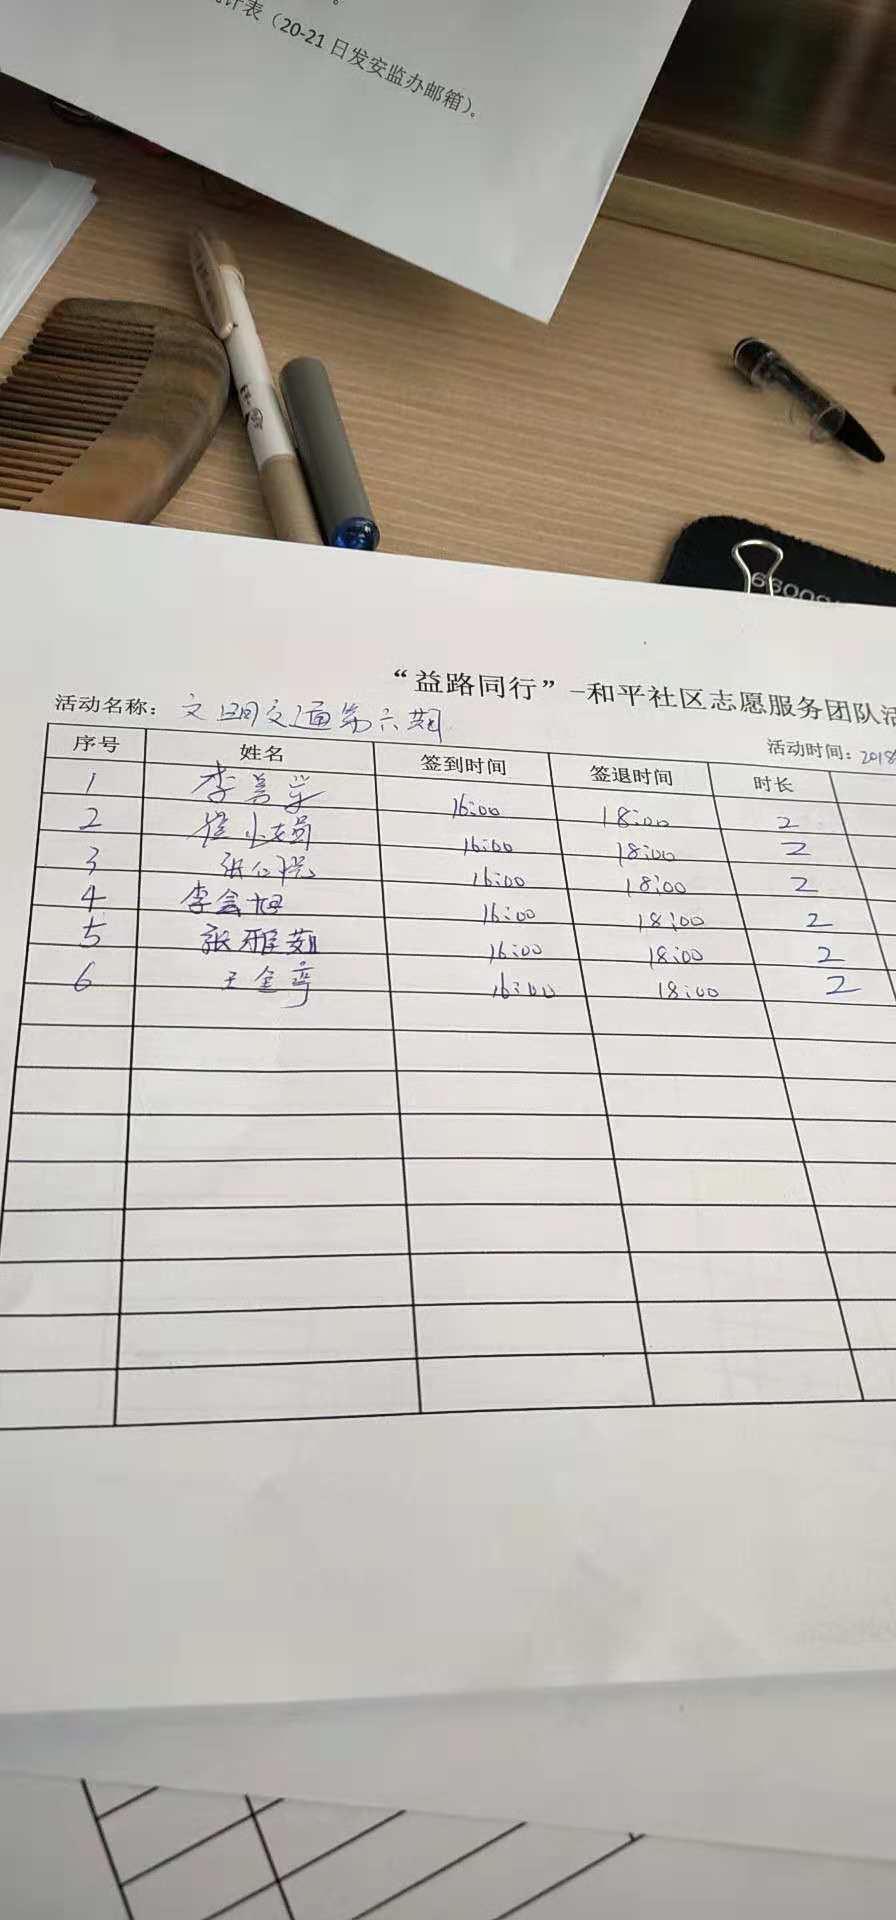 。
计表（20-21日发安监办邮箱）。
6600
“益路同行”-和平社区志愿服务团队活
活动名称：文明交通第六期
活动时间：2018
序号 姓名 签到时间 签退时间 时长
1 李 16:00 18:00 2
2 崔小娟 16:00 18:00 2
3 张 16:00 18:00 2
4 李会旭 16:00 18:00 2
5 张雅茹 16:00 18:00 2
6 王金 16:00 18:00 2